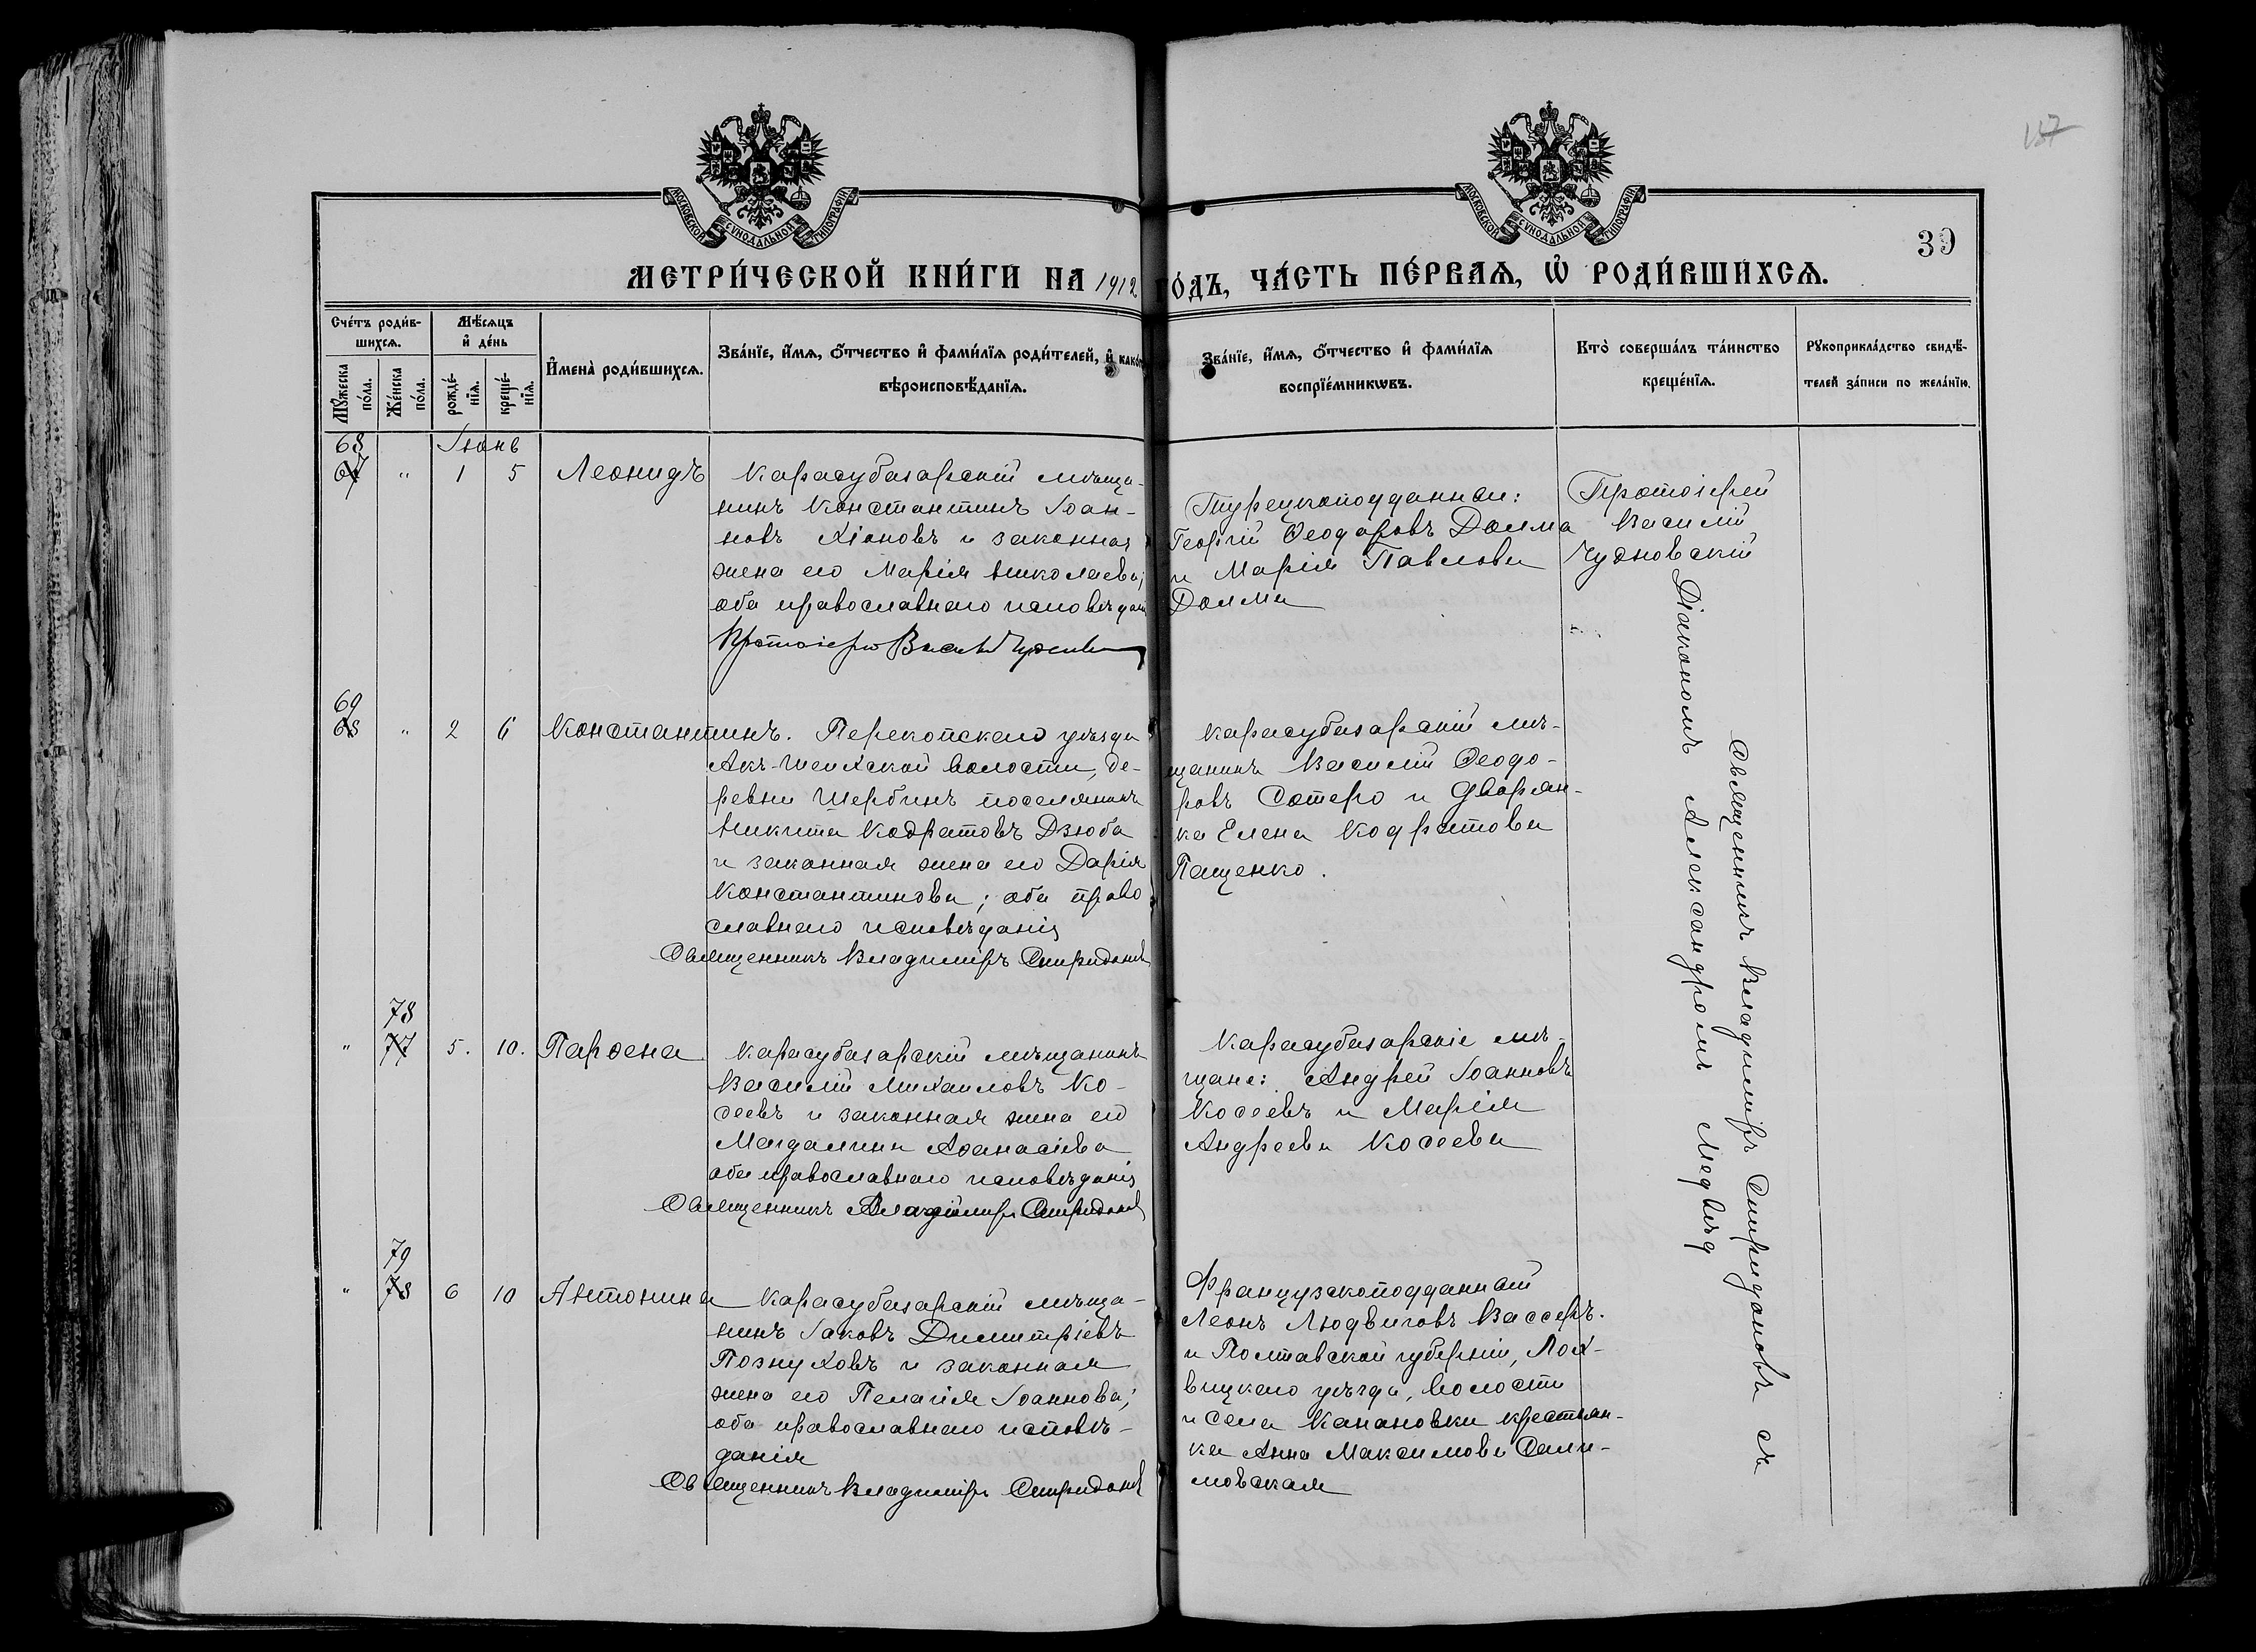 137
МОСКОВСКОЙ СУНОДАЛЬНОЙ ТИПОГРАФІИ
МОСКОВСКОЙ СУНОДАЛЬНОЙ ТИПОГРАФІИ
39
МЕТРИ́ЧЕСКОЙ КНИ́ГИ НА 1912 ГО́ДЪ, ЧА́СТЬ ПЕ́РВАѦ, Ѡ РОДИ́ВШИХСѦ.
Сче́тъ роди́в-
шихсѧ.
Мѣ́сѧцъ
и҆ де́нь
Мꙋ́жеска
по́ла.
Же́нска
по́ла.
рожде́-
нїѧ.
креще́-
нїѧ.
И҆мена̀ роди́вшихсѧ.
Зва́нїе, и҆́мѧ, ѻ҆́тчество и҆ фами́лїѧ роди́телей, и҆ како́гѡ
вѣроисповѣ́данїѧ.
Зва́нїе, и҆́мѧ, ѻ҆́тчество и҆ фами́лїѧ
воспрїе́мникѡвъ.
Кто̀ соверша́лъ та́инство
креще́нїѧ.
Рꙋкоприкла́дство свидѣ́-
телей за́писи по жела́нїю.
68
Іюнь
67 " 1 5 Леонидъ
Карасубазарскій мѣща-
нинъ Константинъ Іоан-
новъ Хіоновъ и законная
жена его Марія Николаева;
оба православнаго исповѣдан
Протоіерей Васил Чудновск
Турецкоподданные:
Георгій Ѳеодоровъ Долма
и Марія Павлова
Долма
Протоіерей
Василій
Чудновскій
69
68 " 2 6 Константинъ.
Перекопскаго уѣзда
Акъ-Шеихской волости, де-
ревни Щербинъ поселянинъ
Никита Кодратовъ Дзюба
и законная жена его Дарія
Константинова; оба право
славнаго исповѣданія
Священникъ Владиміръ Спиридоновъ
Карасубазарскій мѣ-
щанинъ Василій Ѳеодо-
ровъ Сотеро и дворян-
ка Елена Кодратова
Пащенко.
78
" 77 5. 10. Парѳена
Карасубазарскій мѣщанинъ
Василій Михаиловъ Ко-
сеевъ и законная жена его
Магдалина Аѳанасіева
оба православнаго исповѣданія
Священникъ Владиміръ Спиридоновъ
Карасубазарскіе мѣ-
щане: Андрей Іоанновъ
Косеевъ и Марія
Андреева Косеева
79
" 78 6 10 Антонина
Карасубазарскій мѣща-
нинъ Іаковъ Димитріевъ
Познуховъ и законная
жена его Пелагія Іоаннова;
оба православнаго исповѣ-
данія
Священникъ Владиміръ Спиридоновъ
Французскоподданный
Леонъ Людвиговъ Вассеръ.
и Полтавской губерніи, Лох-
вицкаго уѣзда, волости
и села Кананой крестьян-
ка Анна Максимова Сали-
мовская
Священникъ Владиміръ Спиридоновъ съ
Діакономъ Александромъ Медвѣд